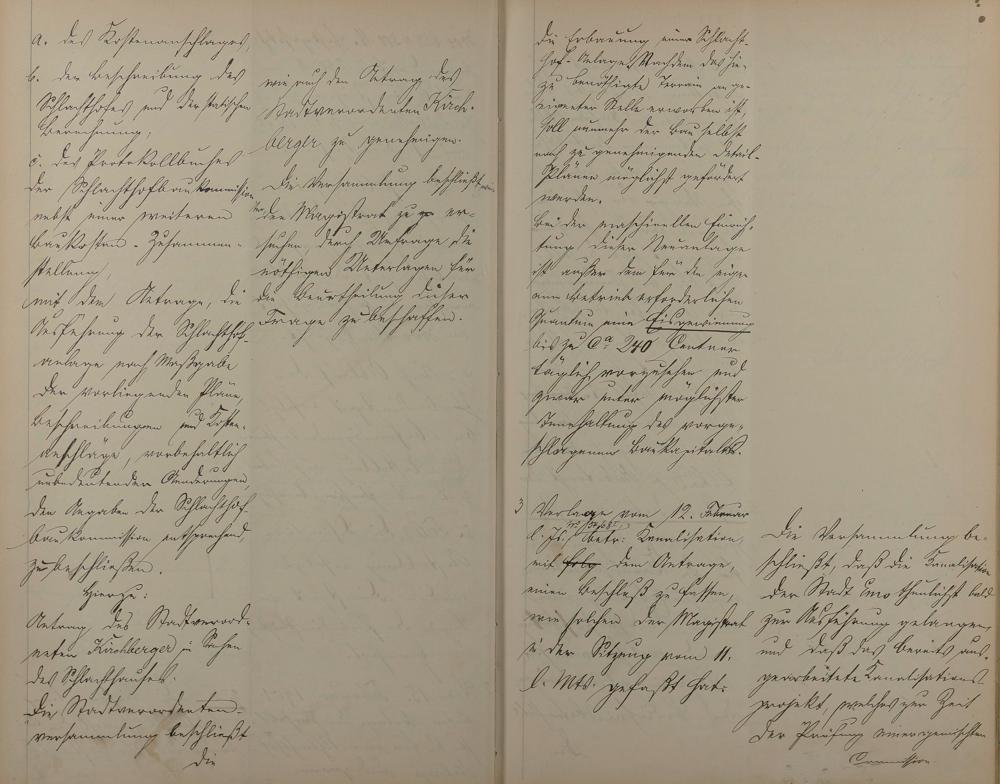 a. des Kostenanschlages,
b. der Beschreibung des
Schlachthofes und der statischen
Berechnung,
c. des Protokollbuches
der Schlachthofbaukommission
nebst einer weiteren
Baukosten-Zusammen-
stellung,
mit dem Antrage, die
Ausführung der Schlachthof-
anlage nach Maßgabe
der vorliegenden Pläne,
Beschreibungen und Kosten-
anschläge, vorbehaltlich
unbedeutender Aenderungen,
den Angaben der Schlachthof-
baukommission entsprechend,
zu beschließen.
Hierzu:
Antrag des Stadtverord-
neten Kirchberger in Sachen
des Schlachthauses.
Die Stadtverordneten-
versammlung beschließt
die
wie auch den Antrag des
Stadtverordneten Kirch-
berger zu genehmigen.
Die Versammlung beschließt
den Magistrat zu er-
suchen, durch Umfrage die
nöthigen Unterlagen für
die Beurtheilung dieser
Frage zu beschaffen.
die Erbauung einer Schlacht-
hof-Anlage. Nachdem das hie-
zu benöthigte Terrain an ge-
eigneter Stelle erworben ist,
soll nunmehr der Bau selbst
nach zu genehmigenden Detail-
Plänen möglichst gefördert
werden.
Bei der maschinellen Einrich-
tung dieser Neuanlage
ist außer dem für den eige-
nen Betrieb erforderlichen
Quantum eine Eisgewinnung
bis zu Ca 240 Centner
täglich vorzusehen und
zwar unter möglichster
Innehaltung des vorge-
schlagenen Baukapitals.
3 Vorlage vom 12. Februar
l. Js. betr. Kanalisation,
mit folg dem Antrage,
einen Beschluß zu fassen,
wie solchen der Magistrat
in der Sitzung vom 11.
l. Mts. gefaßt hat.
Die Versammlung be-
schließt, daß die Kanalisation
der Stadt thunlichst bald
zur Ausführung gelange,
und daß das bereits aus-
gearbeitete Kanalisations-
projekt, welches zur Zeit
der Prüfung einer gemischten
Commission